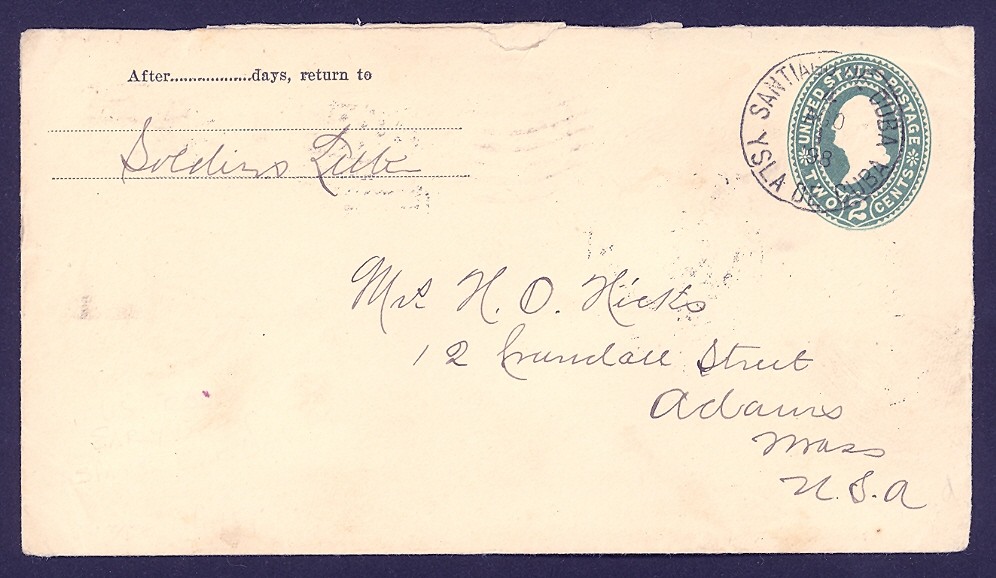 After..................days, return to
Soldiers Letter
UNITED STATES POSTAGE
TWO CENTS
2
SANTIAGO DE CUBA
98
YSLA DE CUBA
Mrs H. O. Hicks
12 Crandall Street
Adams
Mass
U.S.A